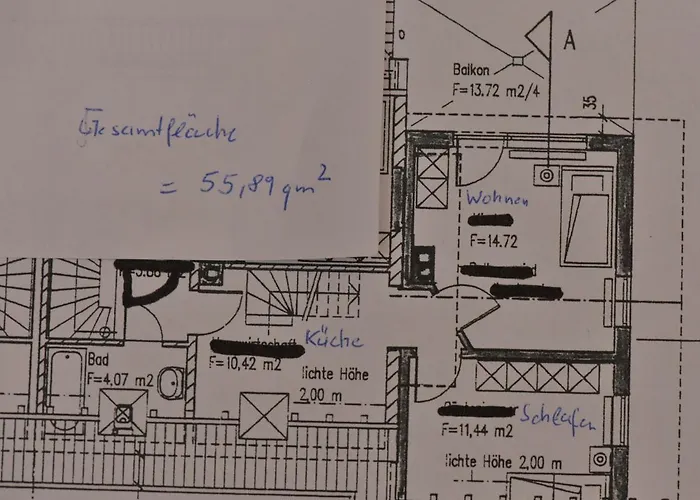 Gesamtfläche
= 55,89 qm²
A
Balkon
F=13.72 m2/4
35
Wohnen
F=14.72
Küche
F=10,42 m2
lichte Höhe
2,00 m
Bad
F=4,07 m2
Schlafen
F=11,44 m2
lichte Höhe 2,00 m